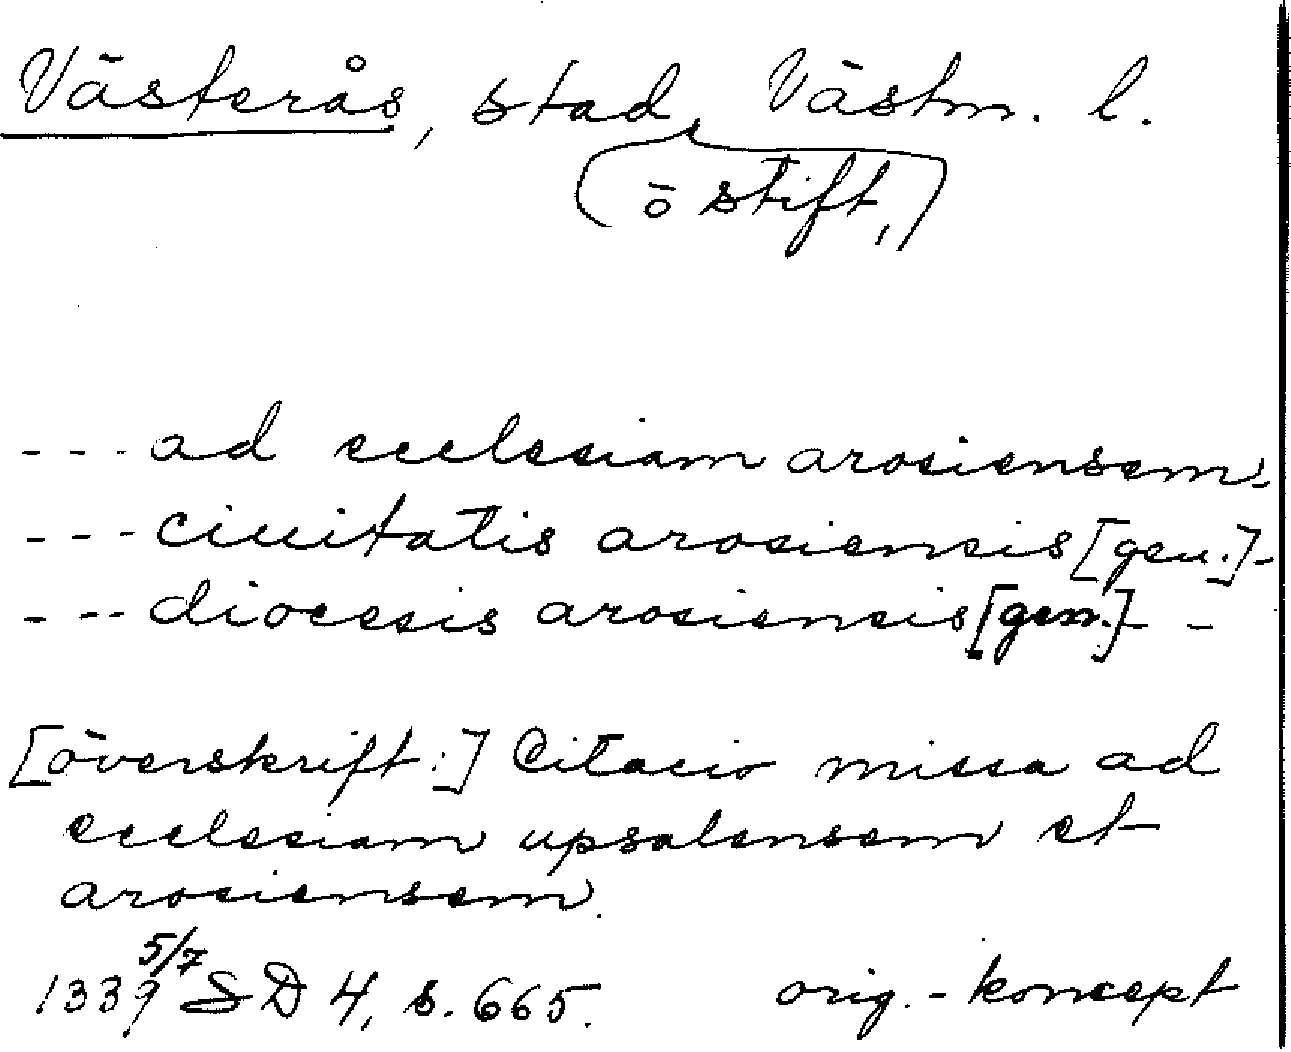 Västerås, stad, Västm. l.
(ō stift,)
--- ad ecclesiam arosiensem -
--- ciuitatis arosiensis [gen.] -
--- diocesis arosiensis [gen.] - -
[överskrift:] Citacio missa ad
ecclesiam upsalensem et
arosiensem.
1339 5/7 SD 4, s. 665. orig.-koncept